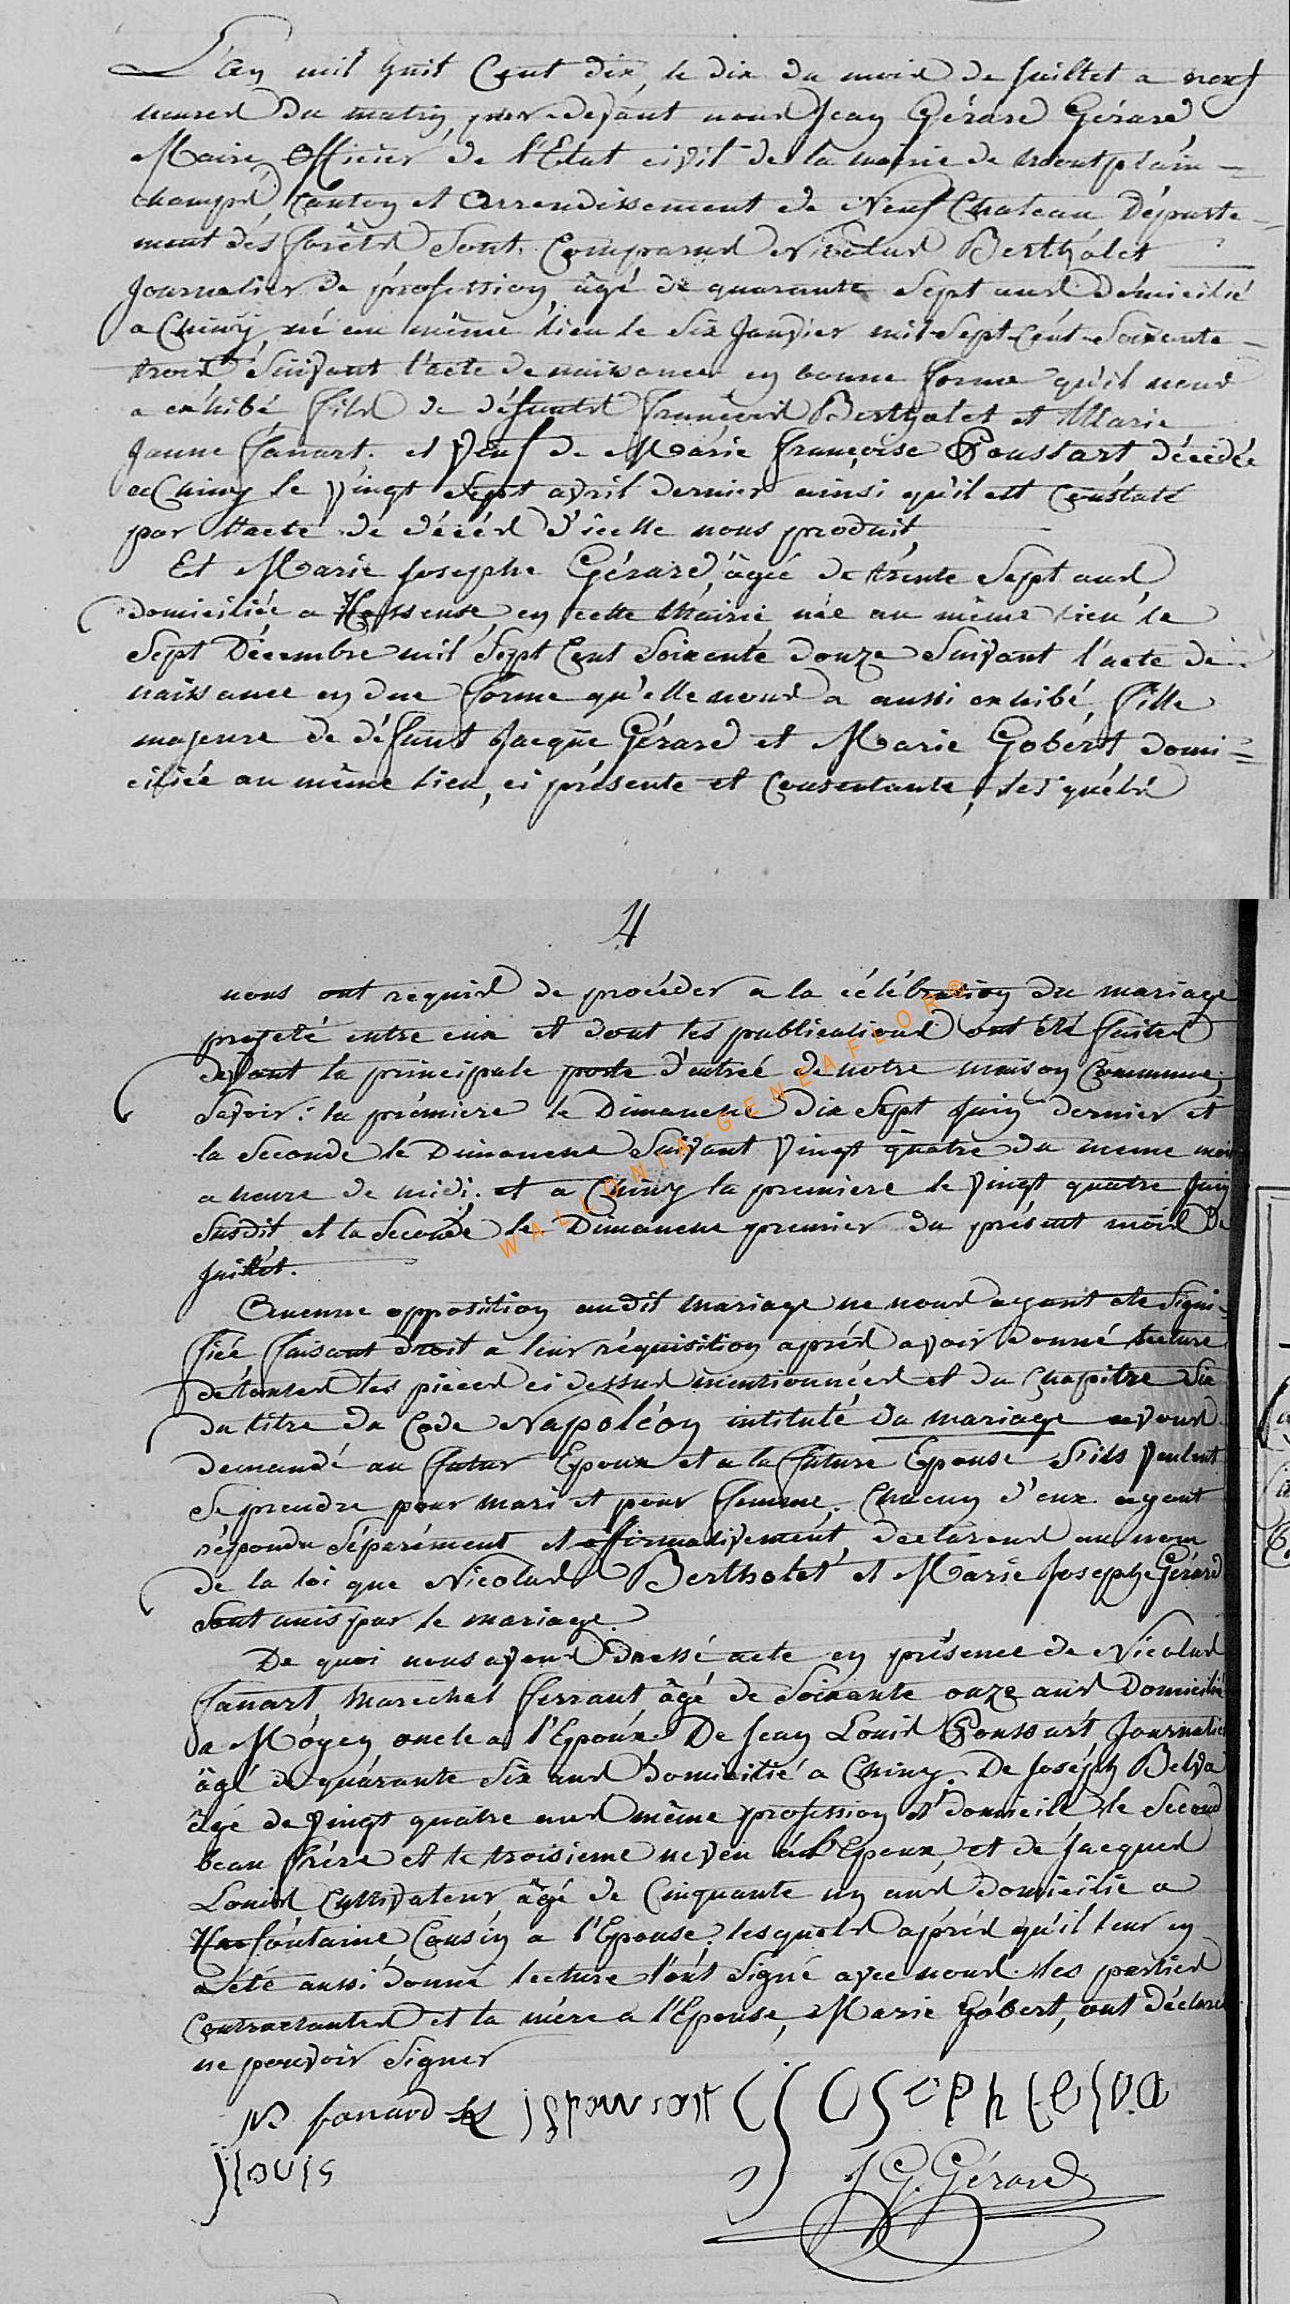 L'an mil huit Cent dix, le dix du mois de Juillet a neuf
heures du matin, par-devant nous Jean Gérard Gérard,
Maire, Officier de l'Etat civil de la mairie de montplain=
champs, Canton et Arrondissement de Neuf Chateau Départe=
ment des forêts Sont Comparus Nicolas Berthólet
Journalier de profession, âgé de quarante Sept ans Domicilié
a Chiny, né au même lieu le Six Janvier mil-Sept-Cent-Soixante-
trois Suivant l'acte de naissance en bonne forme qu'il nous
a exhibé fils de défunts François Bertholet et Marie
Jeanne fanart. et Veuf de Marie françoise Poussart décédée
a Chiny le Vingt Sept avril dernier ainsi qu'il est Constaté
par l'acte de décès d'icelle nous produit,
Et Marie Josephe Gérard, âgée de trente Sept ans
domiciliée a en cette Mairie née au même lieu le
Sept Décembre mil Sept Cent Soixante douze Suivant l'acte de
naissance en due forme qu'elle nous a aussi exhibé, fille
majeure de défunt Jacque Gérard et Marie Gobert domi=
ciliée au même lieu, ci présente et Consentante, lesquels
4
nous ont requis de procéder a la célébration du mariage
projeté entre eux et dont les publications ont été faites
devant la principale porte d'entrée de notre maison Commune;
Savoir: la prémiere le Dimanche dix Sept Juin dernier et
la Seconde le Dimanche Suivant Vingt quatre du meme mois
a heure de midi. et a Chiny la premiere le Vingt quatre Juin
Susdit et la Seconde le Dimanche premier du présent mois De
Juillet.
Aucune opposition audit mariage ne nous ayant été Signi-
fiée faisant droit a leur réquisition après avoir donné lecture
de toutes les pieces ci dessus mentionnées et du Chapitre Six
du titre du Code Napoléon intitulé du mariage avons
demandé au futur Epoux et a la future Epouse S'ils Veulent
Se prendre pour mari et pour femme, Chacun d'eux ayant
répondu Séparément et affirmativement, declarons au nom
de la loi que Nicolas Bertholet et Marie Josephe Gérard
Sont unis par le mariage.
De quoi nous avons Dressé acte en présence de Nicolas
fanart, marechal ferrant âgé de Soixante onze ans Domicilié
a Móyen, oncle a l'Epoux. De Jean Louis Poussart, Journalier
âgé de quarante Six ans domicilié a Chiny. De Joséph Belva
âgé de vingt quatre ans même profession et domicile, le Second
beau frère et le troisieme neveu a l'Epoux, et de Jacques
Louis Cultivateur âgé de Cinquante un ans domicilié a
Cousin a l'Epouse, lesquels après qu'il leur en
a été aussi donné lecture l'ont Signé avec nous. les parties
Contractantes et la mère a l'Epouse, Marie Gobert, ont déclaré
ne pouvoir Signer
N. fanard
JOSEPH BELVA
J louis
J G. Gérard
WALLONIA-GENEAFLOR®